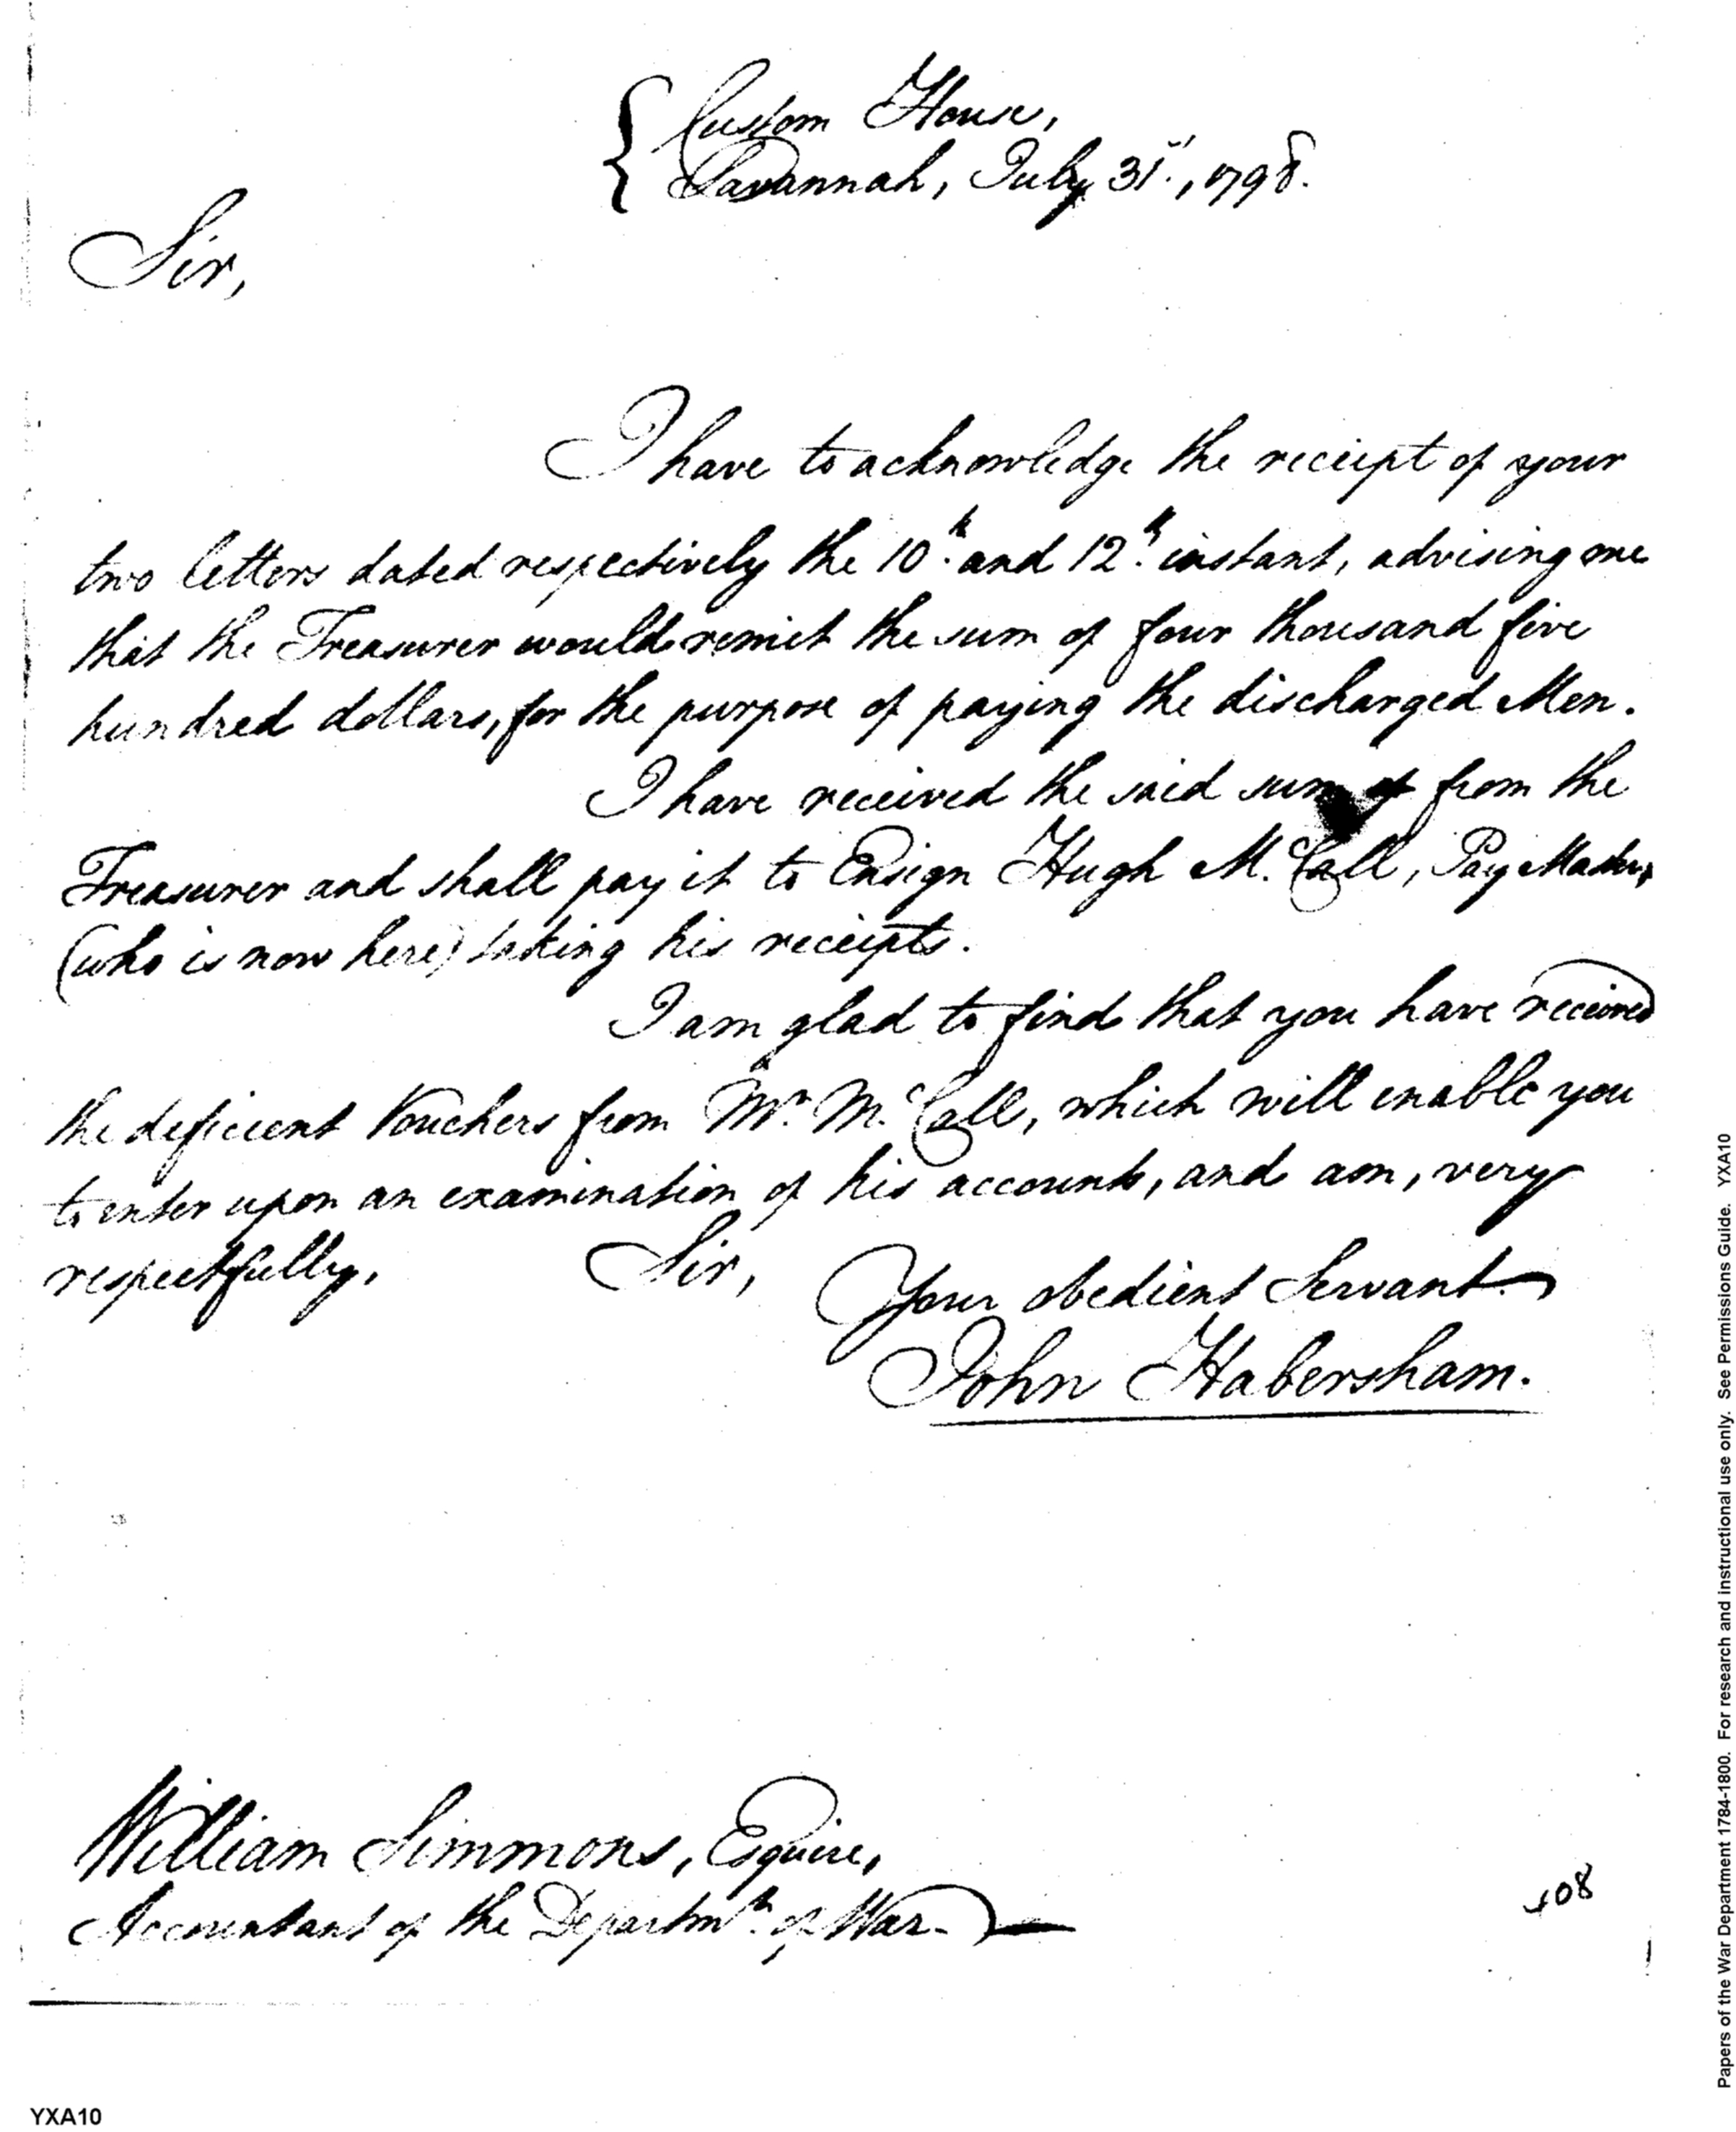 Custom House,
Savannah, July 31st., 1798.
Sir,
I have to acknowledge the receipt of your
two letters dated respectively the 10th. and 12th. instant, advising me
that the Treasurer would remit the sum of four thousand five
hundred dollars, for the purpose of paying the discharged Men.
I have received the said sum of from the
Treasurer and shall pay it to Ensign Hugh M.Call, Pay Master,
(who is now here) taking his receipts.
I am glad to find that you have received
the deficient Vouchers from Mr. M.Call, which will enable you
to enter upon an examination of his accounts, and am, very
respectfully, Sir, Your obedient Servant
John Habersham.
William Simmons, Esquire,
Accountant of the Departmt. of War.
408
YXA10
Papers of the War Department 1784-1800. For research and instructional use only. See Permissions Guide. YXA10